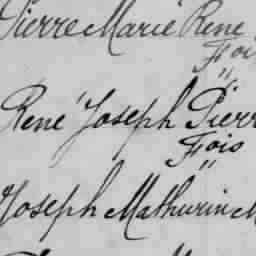 Pierre Marie René
Fois
"
René Joseph Pierr
Fois
"
Joseph Mathurin M